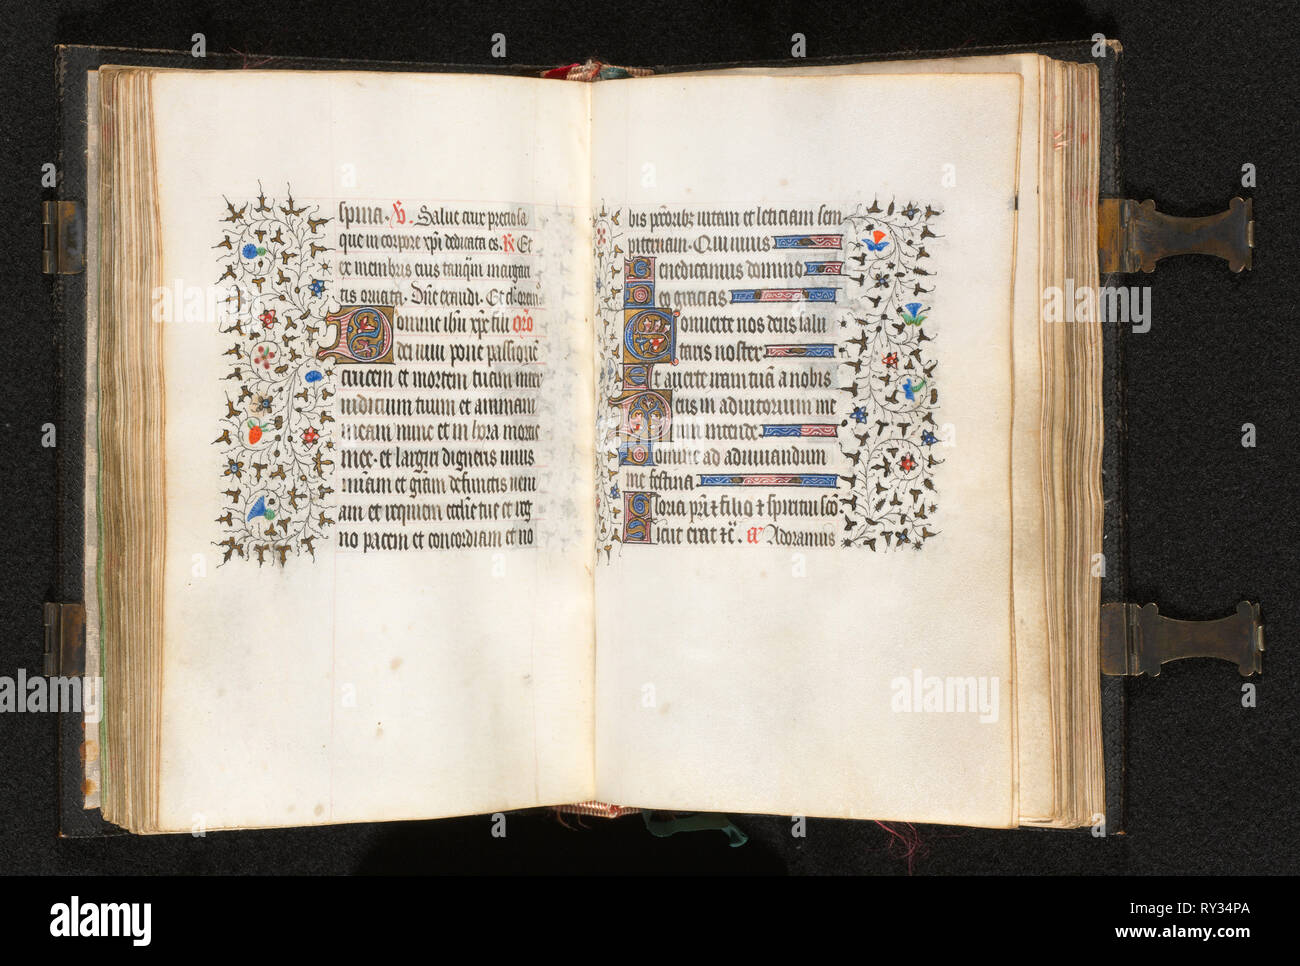 spina. V. Salue crux preciosa
que in corpore xpi dedicata es. R Et
ex membris eius tanqm margari
tis ornata. Dne exaudi. Et clorem
Domine ihu xpe fili Oro
dei uiui pone passione
crucem et mortem tuam inter
iudicium tuum et animam
meam nunc et in hora mortis
mee. et largiri digneris uiuis
miam et gram defunctis ueni
am et requiem ecclie tue et reg
no pacem et concordiam et no
bis pctoribz uitam et leticiam sem
piternam. Qui uiuis
Benedicamus domino
Deo gracias
Conuerte nos deus salu
taris noster
Et auerte iram tuã a nobis
Deus in adiutorium me
um intende
Domine ad adiuuandum
me festina
Gloria pri et filio et spiritui sco.
Sicut erat etc. an Adoramus
alamy
alamy
Image ID: RY34PA
www.alamy.com